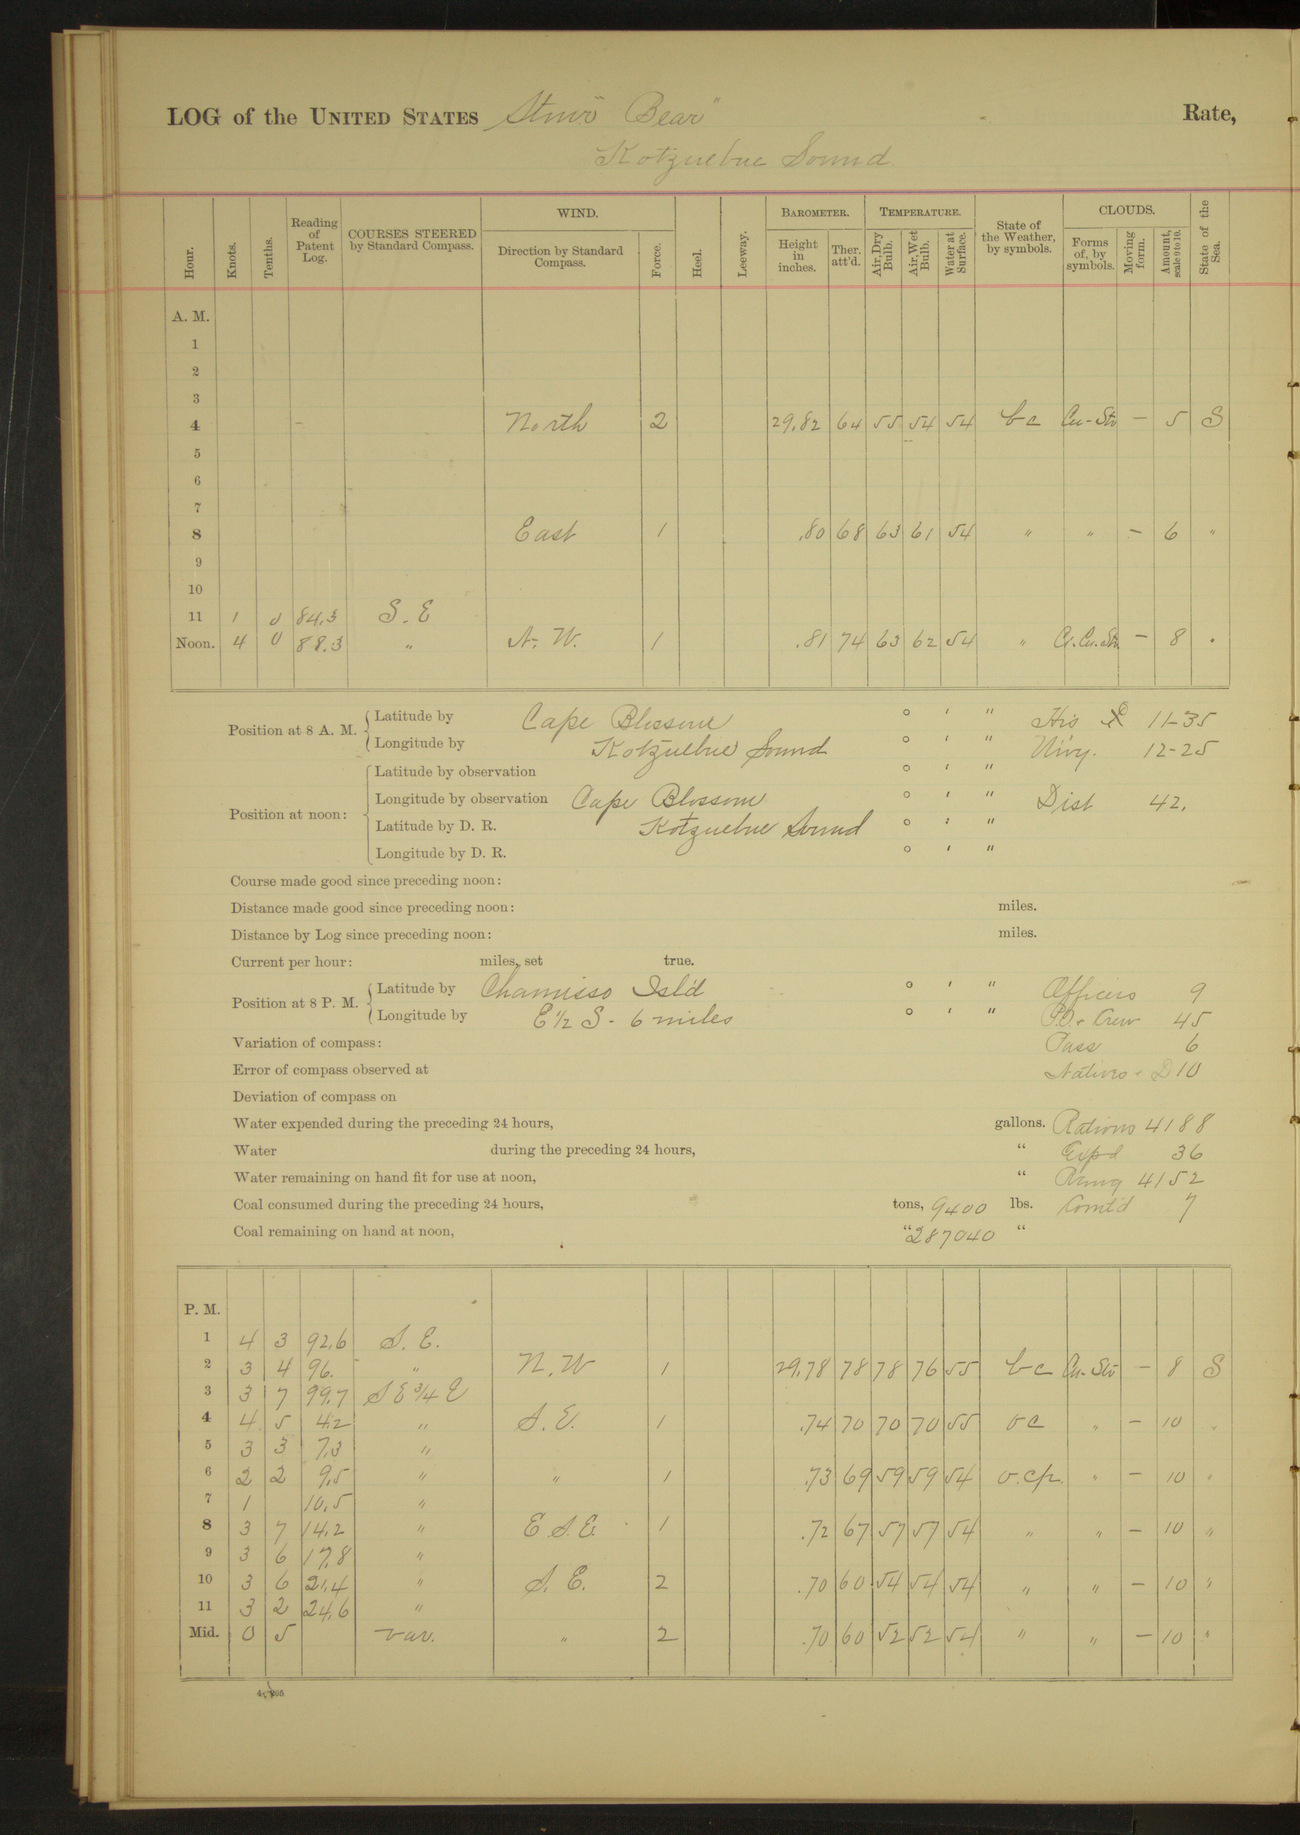 LOG of the UNITED STATES Stmr "Bear" Rate,
Kotzuebue Sound
Hour. Knots. Tenths. Reading of Patent Log. COURSES STEERED by Standard Compass. WIND. Direction by Standard Compass. Force. Heel. Leeway. BAROMETER. Height in inches. Ther. att'd. TEMPERATURE. Air, Dry Bulb. Air, Wet Bulb. Water at Surface. State of the Weather, by symbols. CLOUDS. Forms of, by symbols. Moving form. Amount, scale 0 to 10. State of the Sea.
A. M.
1
2
3
4 - North 2 29.82 64 55 54 54 bc Cu-Str - 5 S
5
6
7
8 East 1 .80 68 63 61 54 " " - 6 "
9
10
11 1 0 84.3 S.E
Noon. 4 0 88.3 " N.W. 1 .81 74 63 62 54 " Ci.Cu.Str - 8 "
Position at 8 A. M. Latitude by Cape Blossom ° ' " Hrs 11-35
Longitude by Kotzuebue Sound ° ' " 12-25
Position at noon: Latitude by observation ° ' "
Longitude by observation Cape Blossom ° ' " Dist 42.
Latitude by D. R. Kotzuebue Sound ° ' "
Longitude by D. R. ° ' "
Course made good since preceding noon:
Distance made good since preceding noon: miles.
Distance by Log since preceding noon: miles.
Current per hour: miles, set true.
Position at 8 P. M. Latitude by Chamisso Isl'd ° ' " Officers 9
Longitude by E 1/2 S - 6 miles ° ' " P.O. & Crew 45
Variation of compass: Pass 6
Error of compass observed at Natives & D 10
Deviation of compass on
Water expended during the preceding 24 hours, gallons. Rations 4188
Water during the preceding 24 hours, " Exp'd 36
Water remaining on hand fit for use at noon, " Rmng 4152
Coal consumed during the preceding 24 hours, tons, 9400 lbs. Comt'd 7
Coal remaining on hand at noon, " 287040 "
P. M.
1 4 3 92.6 S.E.
2 3 4 96. " N.W 1 29.78 78 78 76 55 bc Cu-Str - 8 S
3 3 7 99.7 SE 3/4 E
4 4 5 4.2 " S.E. 1 .74 70 70 70 55 oc " - 10 "
5 3 3 7.3 "
6 2 2 9.5 " " 1 .73 69 59 59 54 o.c.p. " - 10 "
7 1 10.5 "
8 3 7 14.2 " E.S.E. 1 .72 67 57 57 54 " " - 10 "
9 3 6 17.8 "
10 3 6 21.4 " S.E. 2 .70 60 54 54 54 " " - 10 "
11 3 2 24.6 "
Mid. 0 5 var. " 2 .70 60 52 52 54 " " - 10 "